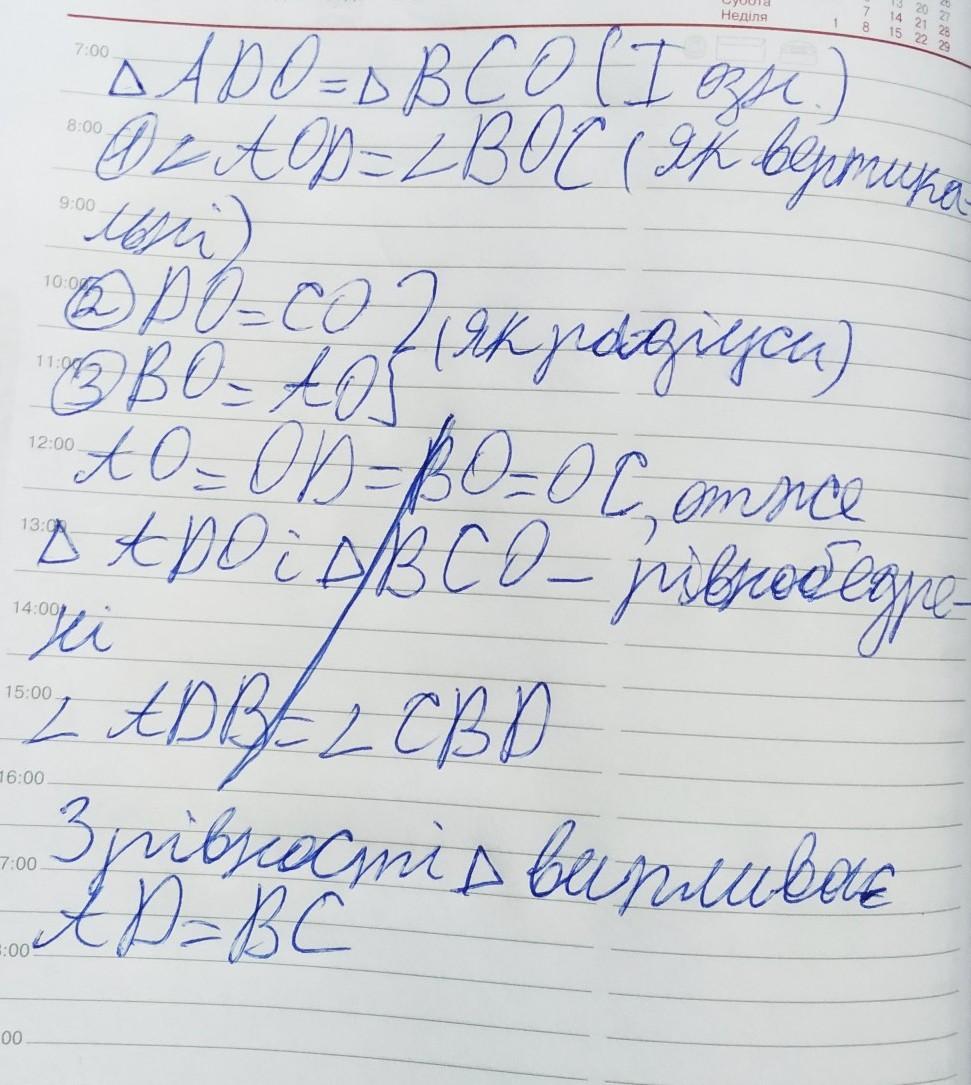 Субота 7 14 21 28
Неділя 1 8 15 22 29
7:00 △ ADO = △ BCO (I озн.)
8:00 ① ∠ AOD = ∠ BOC (як вертика-
9:00 льні)
10:00 ② DO = CO } (як радіуси)
11:00 ③ BO = AO
12:00 AO = OD = BO = OC, отже
13:00 △ ADO і △ BCO – рівнобедре-
14:00 ні
15:00 ∠ ADB = ∠ CBD
16:00
З рівності △ випливає
7:00
AD = BC
:00
00